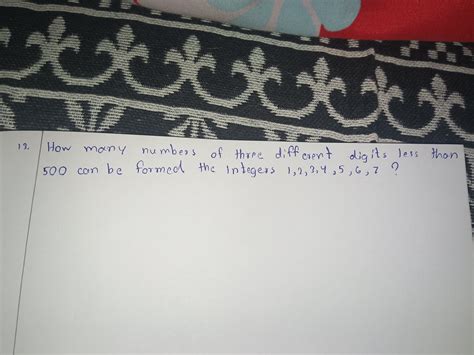 12. How many numbers of three different digits less than
500 can be formed the Integers 1,2,3,4,5,6,7 ?